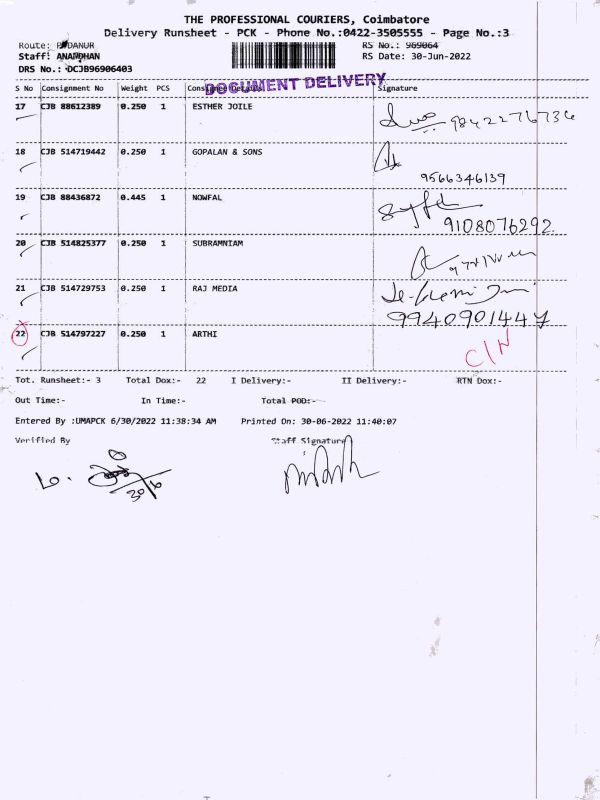 THE PROFESSIONAL COURIERS, Coimbatore
Delivery Runsheet - PCK - Phone No.:0422-3505555 - Page No.:3
Route: PODANUR RS No.: 969064
Staff: ANANDHAN RS Date: 30-Jun-2022
DRS No.: DCJB96906403
DOCUMENT DELIVERY
S No Consignment No Weight PCS Consignee Details Signature
17 CJB 88612389 0.250 1 ESTHER JOILE 9842276736
18 CJB 514719442 0.250 1 GOPALAN & SONS
9566346139
19 CJB 88436872 0.445 1 NOWFAL
9108076292
20 CJB 514825377 0.250 1 SUBRAMNIAM
21 CJB 514729753 0.250 1 RAJ MEDIA
9940901447
22 CJB 514797227 0.250 1 ARTHI
C/N
Tot. Runsheet:- 3 Total Dox:- 22 I Delivery:- II Delivery:- RTN Dox:-
Out Time:- In Time:- Total POD:-
Entered By :UMAPCK 6/30/2022 11:38:34 AM Printed On: 30-06-2022 11:40:07
Verified By Staff Signature
30/6